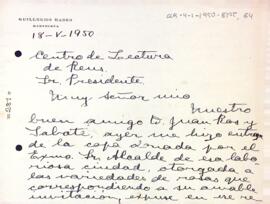 GUILLERMO BADER
18-V-1950
Centro de Lectura
de Reus.
Sr. Presidente.
Muy señor mio
Nuestro
buen amigo D. Juan Ros y
Sabaté, ayer me hizo entrega
de la copa donada por el
Exmo. Sr. Alcalde de esa labo-
riosa ciudad, otorgada a
las variedades de rosas que
correspondiendo a su amable
invitacion, expuse en ese re